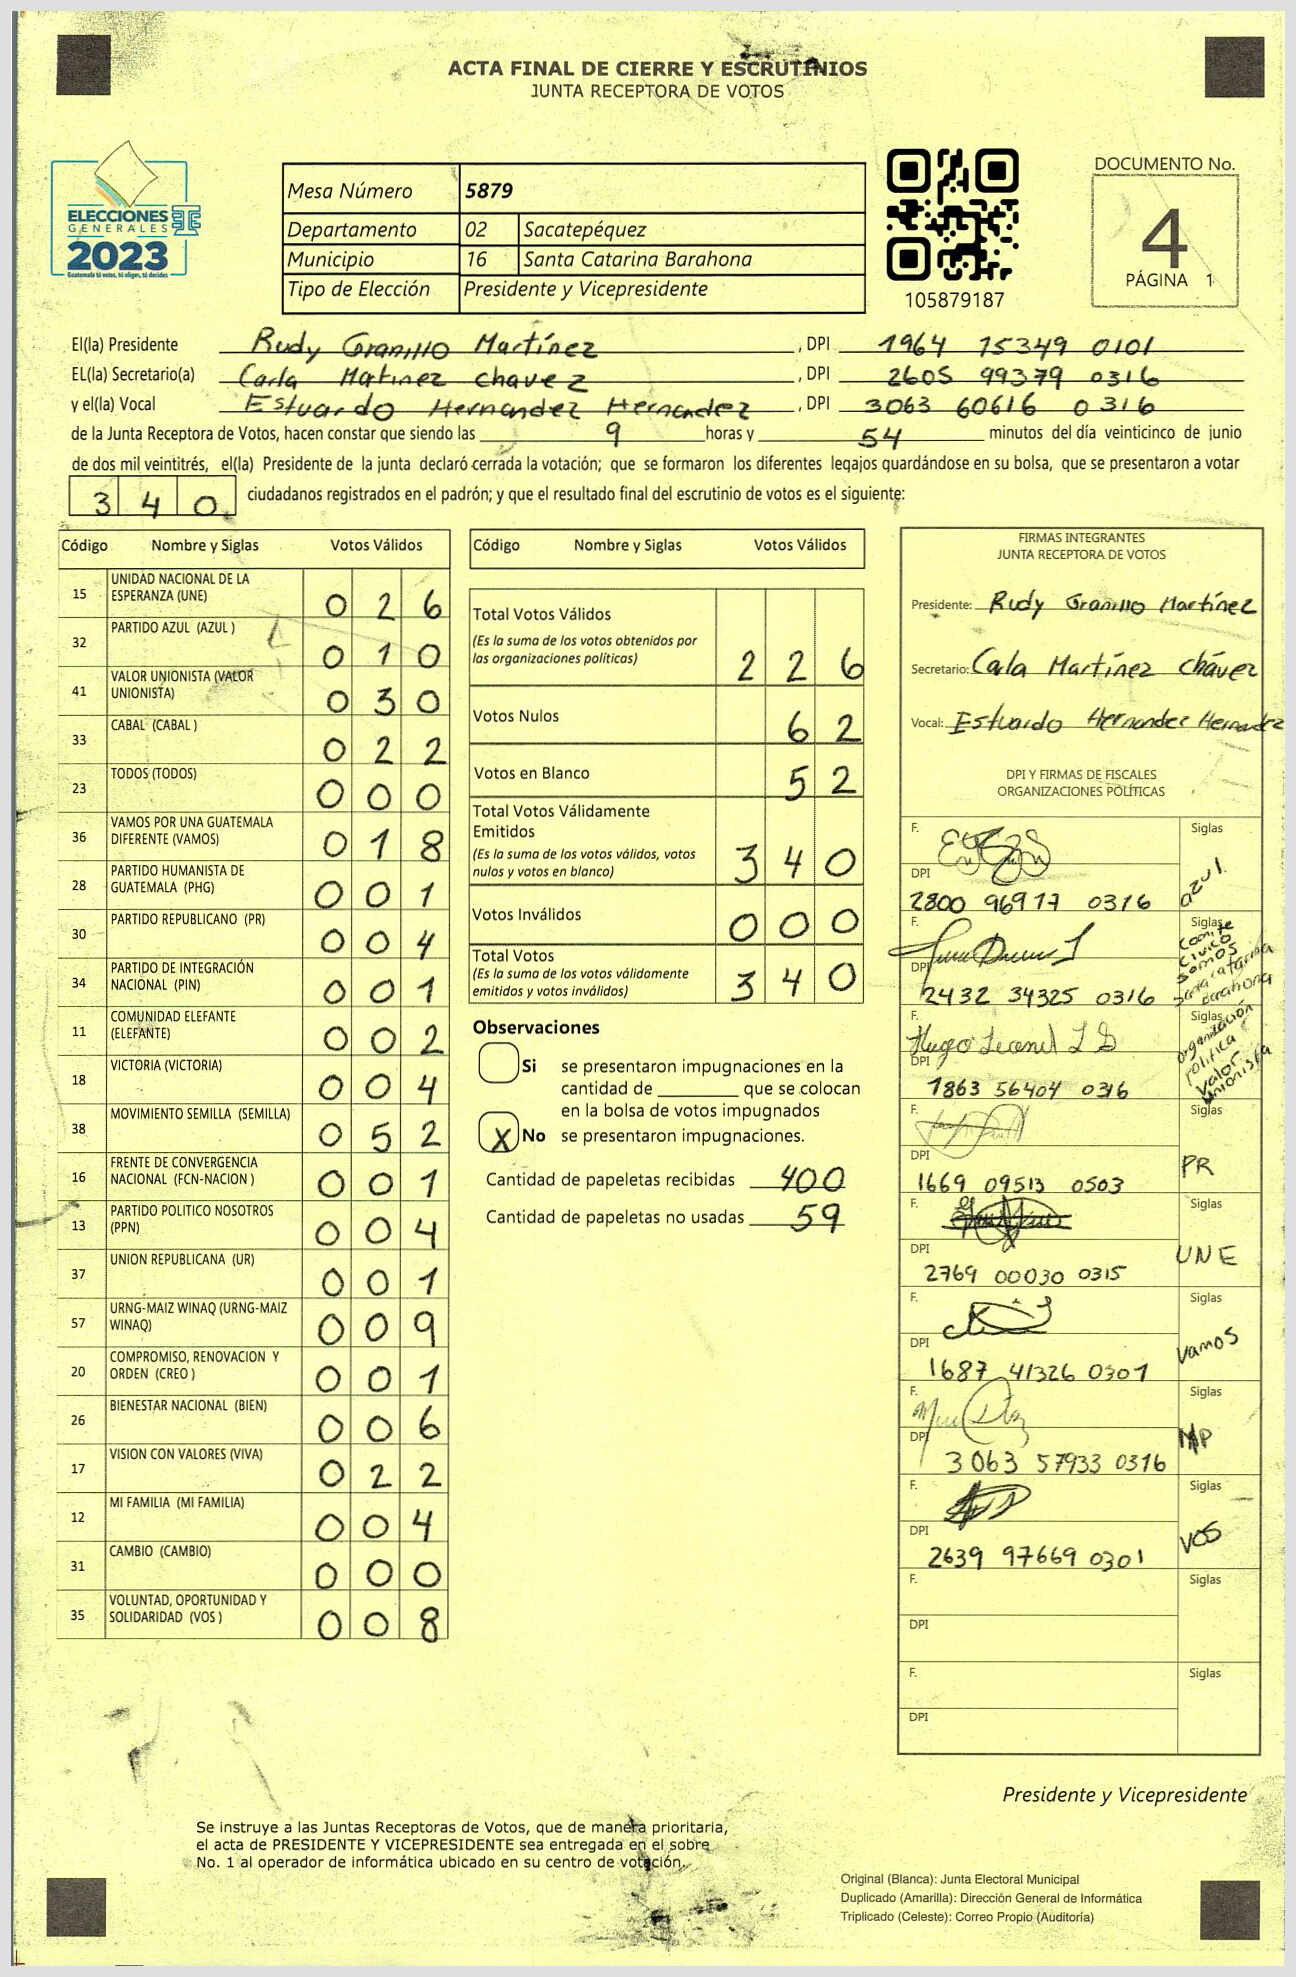 ACTA FINAL DE CIERRE Y ESCRUTINIOS
JUNTA RECEPTORA DE VOTOS
ELECCIONES
GENERALES
2023
Guatemala tú votas, tú eliges, tú decides
Mesa Número 5879
Departamento 02 Sacatepéquez
Municipio 16 Santa Catarina Barahona
Tipo de Elección Presidente y Vicepresidente
105879187
DOCUMENTO No.
4
PÁGINA 1
El(la) Presidente Rudy Granillo Martínez , DPI 1964 15349 0101
EL(la) Secretario(a) Carla Matinez chavez , DPI 2605 99379 0316
y el(la) Vocal Estuardo Hernandez Hernandez , DPI 3063 60616 0316
de la Junta Receptora de Votos, hacen constar que siendo las 9 horas y 54 minutos del día veinticinco de junio
de dos mil veintitrés, el(la) Presidente de la junta declaró cerrada la votación; que se formaron los diferentes legajos guardándose en su bolsa, que se presentaron a votar
340 ciudadanos registrados en el padrón; y que el resultado final del escrutinio de votos es el siguiente:
Código Nombre y Siglas Votos Válidos
15 UNIDAD NACIONAL DE LA ESPERANZA (UNE) 0 2 6
32 PARTIDO AZUL (AZUL ) 0 1 0
41 VALOR UNIONISTA (VALOR UNIONISTA) 0 3 0
33 CABAL (CABAL ) 0 2 2
23 TODOS (TODOS) 0 0 0
36 VAMOS POR UNA GUATEMALA DIFERENTE (VAMOS) 0 1 8
28 PARTIDO HUMANISTA DE GUATEMALA (PHG) 0 0 1
30 PARTIDO REPUBLICANO (PR) 0 0 4
34 PARTIDO DE INTEGRACIÓN NACIONAL (PIN) 0 0 1
11 COMUNIDAD ELEFANTE (ELEFANTE) 0 0 2
18 VICTORIA (VICTORIA) 0 0 4
38 MOVIMIENTO SEMILLA (SEMILLA) 0 5 2
16 FRENTE DE CONVERGENCIA NACIONAL (FCN-NACION ) 0 0 1
13 PARTIDO POLITICO NOSOTROS (PPN) 0 0 4
37 UNION REPUBLICANA (UR) 0 0 1
57 URNG-MAIZ WINAQ (URNG-MAIZ WINAQ) 0 0 9
20 COMPROMISO, RENOVACION Y ORDEN (CREO ) 0 0 1
26 BIENESTAR NACIONAL (BIEN) 0 0 6
17 VISION CON VALORES (VIVA) 0 2 2
12 MI FAMILIA (MI FAMILIA) 0 0 4
31 CAMBIO (CAMBIO) 0 0 0
35 VOLUNTAD, OPORTUNIDAD Y SOLIDARIDAD (VOS ) 0 0 8
Código Nombre y Siglas Votos Válidos
Total Votos Válidos
(Es la suma de los votos obtenidos por
las organizaciones políticas) 2 2 6
Votos Nulos 6 2
Votos en Blanco 5 2
Total Votos Válidamente
Emitidos
(Es la suma de los votos válidos, votos
nulos y votos en blanco) 3 4 0
Votos Inválidos 0 0 0
Total Votos
(Es la suma de los votos válidamente
emitidos y votos inválidos) 3 4 0
Observaciones
Si se presentaron impugnaciones en la
cantidad de ________ que se colocan
en la bolsa de votos impugnados
X No se presentaron impugnaciones.
Cantidad de papeletas recibidas 400
Cantidad de papeletas no usadas 59
FIRMAS INTEGRANTES
JUNTA RECEPTORA DE VOTOS
Presidente: Rudy Granillo Martínez
Secretario: Carla Martínez Chávez
Vocal: Estuardo Hernandez Hernandez
DPI Y FIRMAS DE FISCALES
ORGANIZACIONES POLÍTICAS
F. Siglas
DPI 2800 96917 0316 azul
F. Siglas
DPI 2432 34325 0316 Comite Civico Somos Santa Catarina Barahona
F. Hugo Leonel Siglas
DPI 1863 56404 0316 organización politica Valor unionista
F. Siglas
DPI 1669 09513 0503 PR
F. Siglas
DPI 2769 00030 0315 UNE
F. Siglas
DPI 1687 41326 0301 Vamos
F. Siglas
DPI 3063 57933 0316 MP
F. Siglas
DPI 2639 97669 0301 VOS
F. Siglas
DPI
F. Siglas
DPI
Presidente y Vicepresidente
Se instruye a las Juntas Receptoras de Votos, que de manera prioritaria,
el acta de PRESIDENTE Y VICEPRESIDENTE sea entregada en el sobre
No. 1 al operador de informática ubicado en su centro de votación.
Original (Blanca): Junta Electoral Municipal
Duplicado (Amarilla): Dirección General de Informática
Triplicado (Celeste): Correo Propio (Auditoría)